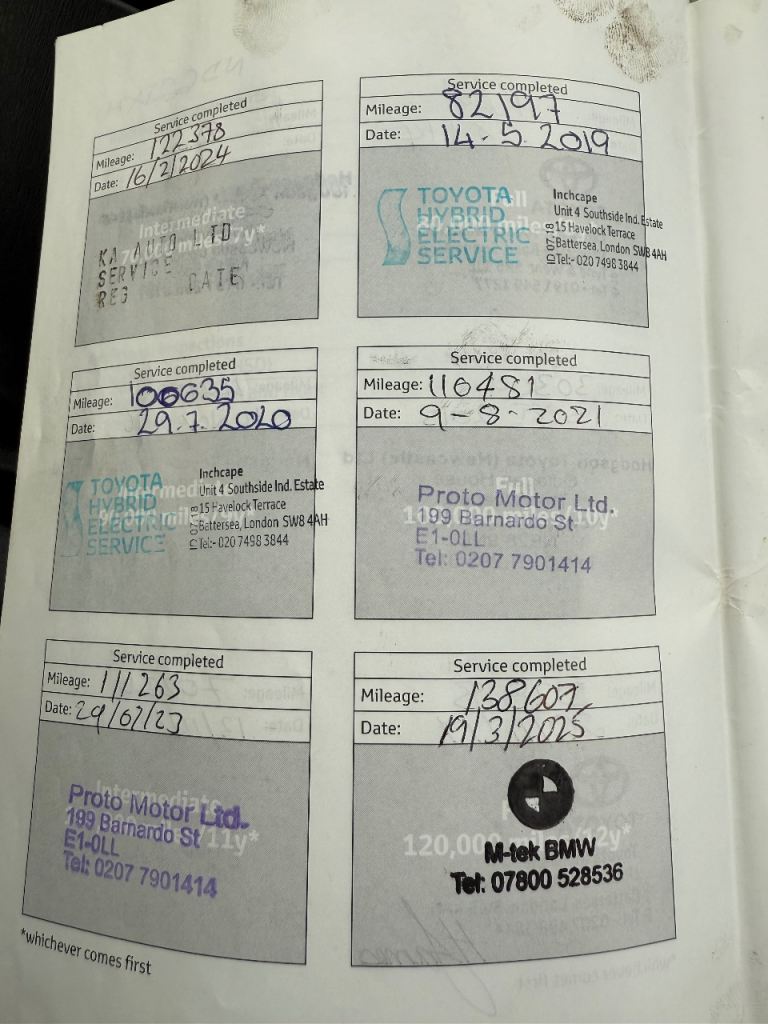 Service completed
Mileage: 122378
Date: 16/2/2024
Intermediate
KA AUTO LTD
SERVICE
REG DATE
Service completed
Mileage: 82197
Date: 14-5.2019
TOYOTA
HYBRID
ELECTRIC
SERVICE
Inchcape
Unit 4 Southside Ind. Estate
15 Havelock Terrace
Battersea, London SW8 4AH
Tel:- 020 7498 3844
Service completed
Mileage: 100635
Date: 29.7.2020
TOYOTA
HYBRID
ELECTRIC
SERVICE
Inchcape
Unit 4 Southside Ind. Estate
15 Havelock Terrace
Battersea, London SW8 4AH
Tel:- 020 7498 3844
Service completed
Mileage: 110481
Date: 9-8-2021
Full
Proto Motor Ltd.
199 Barnardo St
E1-0LL
Tel: 0207 7901414
Service completed
Mileage: 111263
Date: 29/07/23
Intermediate
Proto Motor Ltd.
199 Barnardo St
E1-0LL
Tel: 0207 7901414
Service completed
Mileage: 138607
Date: 19/3/2025
120,000 miles/12y*
M-tek BMW
Tel: 07800 528536
*whichever comes first